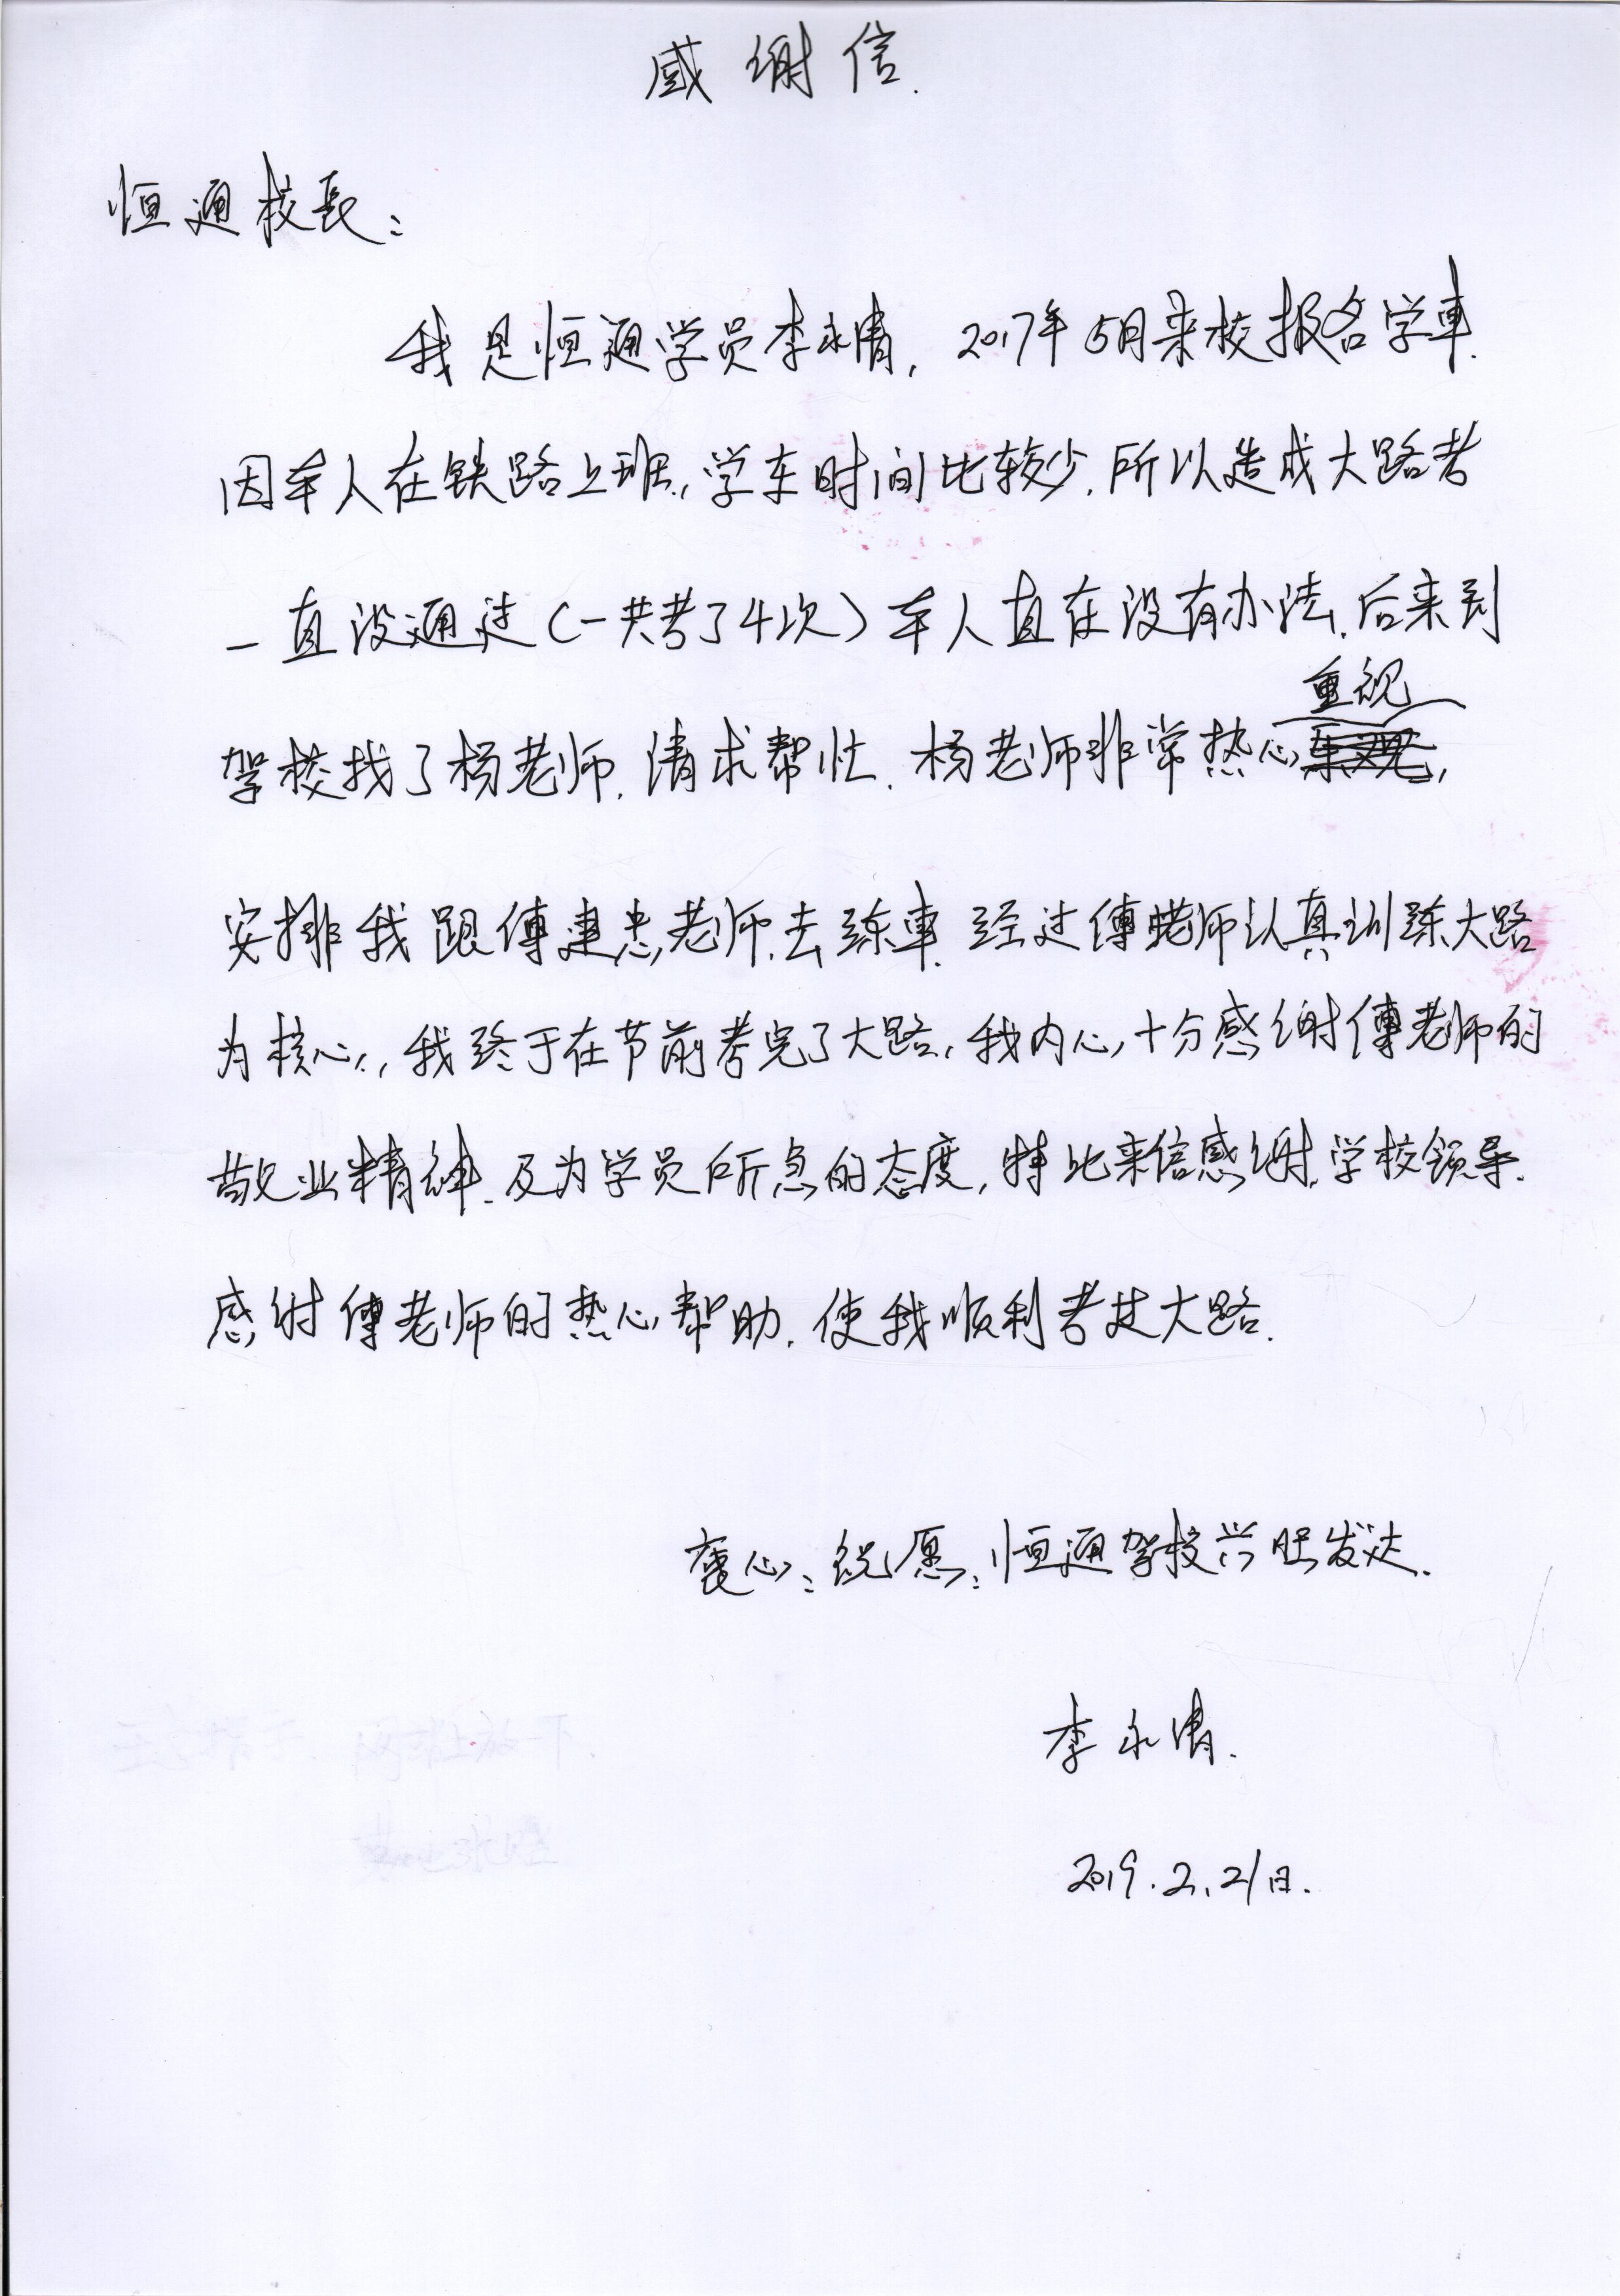 感谢信.
恒通校长:
我是恒通学员李永清, 2017年5月来校报名学車.
因本人在铁路上班, 学车时间比较少. 所以造成大路考
一直没通过(一共考了4次) 本人直在没有办法. 后来到
重视
驾校找了杨老师. 请求帮忙. 杨老师非常热心,
安排我跟傅建忠老师. 去练車. 经过傅老师认真训练大路
为核心, 我终于在节前考完了大路, 我内心十分感谢傅老师的
敬业精神. 及为学员所急的态度, 特此来信感谢. 学校领导.
感谢傅老师的热心帮助. 使我顺利考过大路.
衷心: 祝愿: 恒通驾校兴旺发达.
李永清.
2019.2.21日.